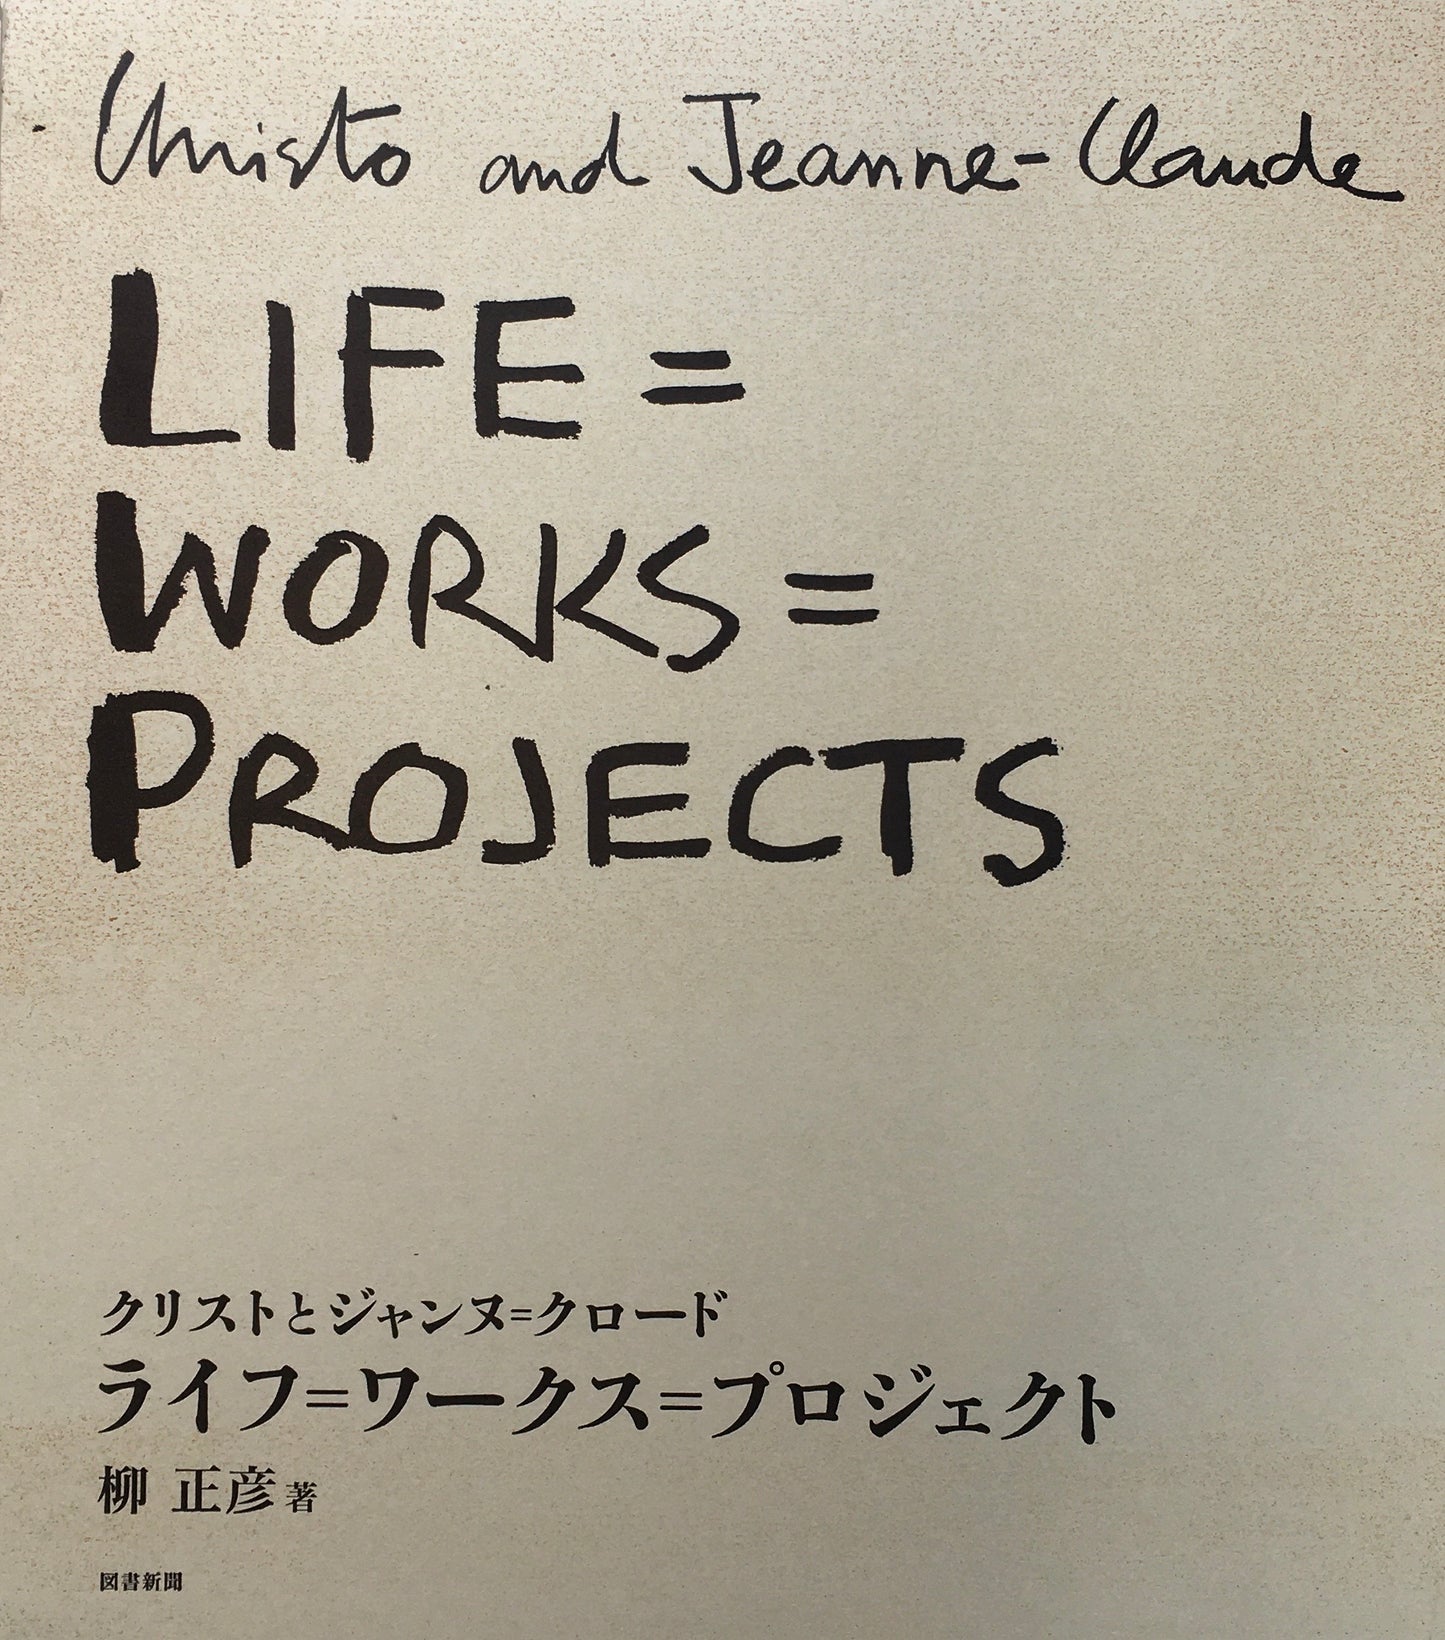 Christo and Jeanne-Claude
LIFE=
WORKS=
PROJECTS
クリストとジャンヌ=クロード
ライフ=ワークス=プロジェクト
柳 正彦 著
図書新聞